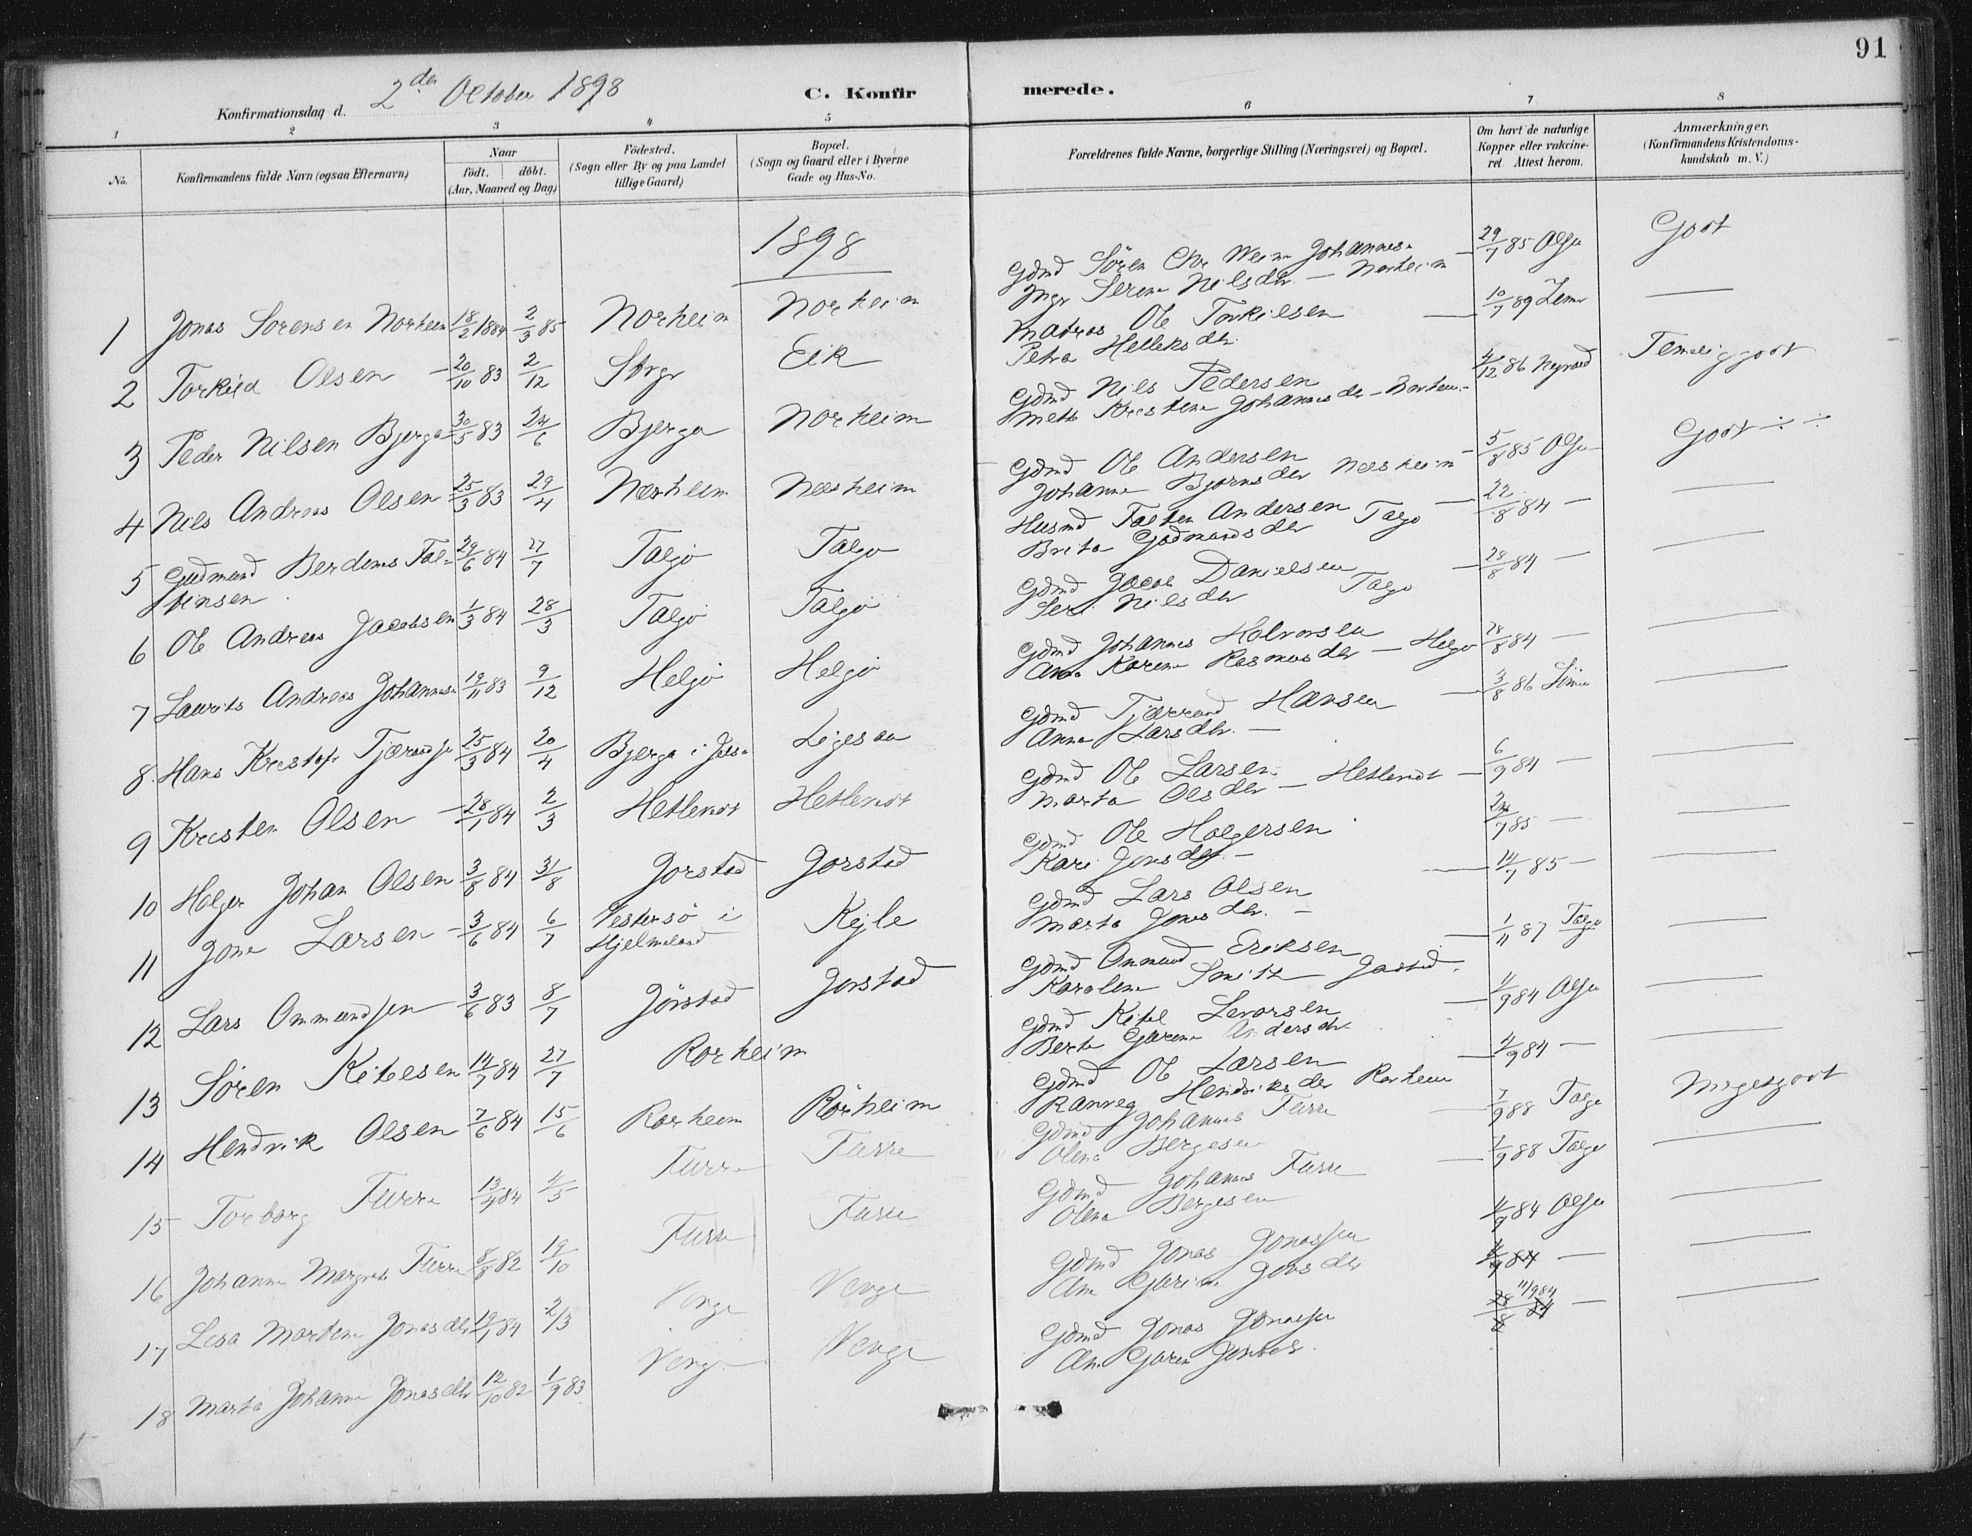 91
Konfirmationsdag d. 2den October 1898
C. Konfirmerede.
1 2 3 4 5 6 7 8
No.
Konfirmandens fulde Navn (ogsaa Efternavn)
Naar
födt. döbt.
(Aar, Maaned og Dag)
Födested.
(Sogn eller By og paa Landet
tillige Gaard)
Bopæl.
(Sogn og Gaard eller i Byerne
Gade og Hus-No.
Forældrenes fulde Navne, borgerlige Stilling (Næringsvei) og Bopæl.
Om havt de naturlige
Kopper eller vakcine-
ret. Attest herom.
Anmærkninger.
(Konfirmandens Kristendoms-
kundskab m. V.)
1898
1 Jonas Sörensen Norheim 18/2 1884 2/3 85 Norheim Norheim
Gdmd Sören Chr Johannes.
Serine Nilsdtr — Norheim
29/7 85 Godt
2 Torkild Olsen — 20/10 83 2/12 Eik
Matros Ole Torkilsen
Petra Helleksdtr
10/7 89 —
3 Peder Nilsen Bjerga 30/5 83 24/6 Bjerga Norheim
Gdmd Nils Pedersen
Mette Kristine Johannesdtr — Norheim
4/12 86 Temelig godt
4 Nils Andreas Olsen 25/3 83 29/4 Nærheim Nærheim
Gdmd Ole Andersen
Johanne Bjornsdtr
5/8 85 Godt
5 Gudmund Berdines Tal-
stinsen 29/6 84 27/7 Talgö Talgö
Husmd Andersen
Brita Gudmundsdtr Talgö
22/8 84 —
6 Ole Andreas Jacobsen 1/3 84 28/3 Talgö Talgö
Gdmd Jacob Danielsen
Seri Nilsdtr Talgö
28/8 84 —
7 Laurits Andreas Johannesen 19/11 83 9/12 Helgö Helgö
Gdmd Johannes Halvorsen
Ane Karine Rasmusdtr — Helgö
28/8 84 —
8 Hans Kristofer Tjærandsen 25/3 84 20/4 Bjerga i Jelsa
Gdmd Tjærand Hansen
Anna Larsdtr. —
3/8 86 —
9 Kristen Olsen — 28/1 84 2/3 Hetlendt Hetlendt
Gdmd Ole Larsen
Marta Olsdtr — Hetlendt
6/9 84 —
10 Holger Johan Olsen 3/8 84 31/8 Jorstad Jorstad
Gdmd Ole Holgersen
Kari Jonsdtr. —
24/7 85 —
11 Jone Larsen — 3/6 84 6/7 Vestersö i
Hjelmeland Kejle
Gdmd Lars Olsen
Marta Jonesdtr. —
14/7 85 —
12 Lars Ommundsen 3/6 83 8/7 Jörstad Jorstad
Gdmd Ommund Eriksen
Karoline Smith Jorstad.
1/11 87 Talgö
13 Sören Kitelsen 14/7 84 27/7 Rorheim
Gdmd Kitel Levorsen
Berta Gurine Andersdtr
4/9 84 —
14 Hendrik Olsen 7/6 84 15/6 Rorheim Rörheim
Gdmd Ole Larsen
Ranveg Hendriksdtr Rorheim
4/9 84 —
15 Torborg Furre 13/4 84 4/5 Furre Furre
Gdmd Johannes Furre
Olena Bergesen
7/9 88 Talgö Megetgodt
16 Johanne Margrete Furre 8/8 82 19/10 Furre Furre
Gdmd Johannes Furre
Olena Bergesen
7/9 88 Talgö
17 Lisa Martine Jonasdtr 19/1 84 2/3 Venge Venge
Gdmd Jonas Jonassen
Ane Gurine Jonsdtr
4/9 84
18 Marta Johanne Jonasdtr 12/10 82 1/9 83 Venge Venge
Gdmd Jonas Jonassen
Ane Gurine Jonsdtr.
11/9 84